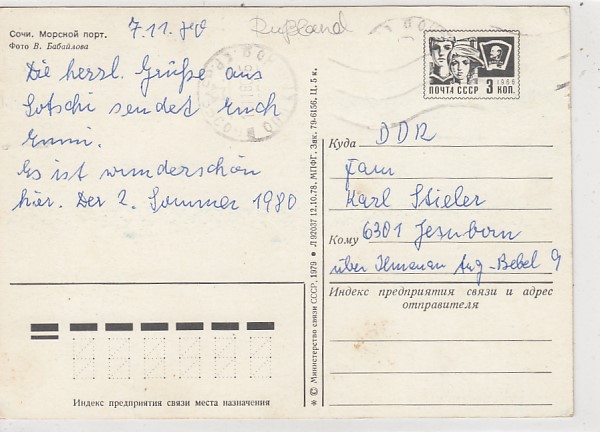 Сочи. Морской порт.
Фото В. Бабайлова
7.11.80
Rußland
Die herzl. Grüße aus
Sotschi sendet Euch
Emmi.
Es ist wunderschön
hier. Der 2. Sommer 1980
1966
ПОЧТА СССР 3 КОП.
Куда DDR
Fam
Karl Stieler
Кому 6301 Jesuborn
über Ilmenau Aug-Bebel 9
Индекс предприятия связи и адрес
отправителя
* © Министерство связи СССР, 1979 ● Л 92037 12.10.78. МПФГ. Зак. 79-6156. Ц. 5 к.
Индекс предприятия связи места назначения